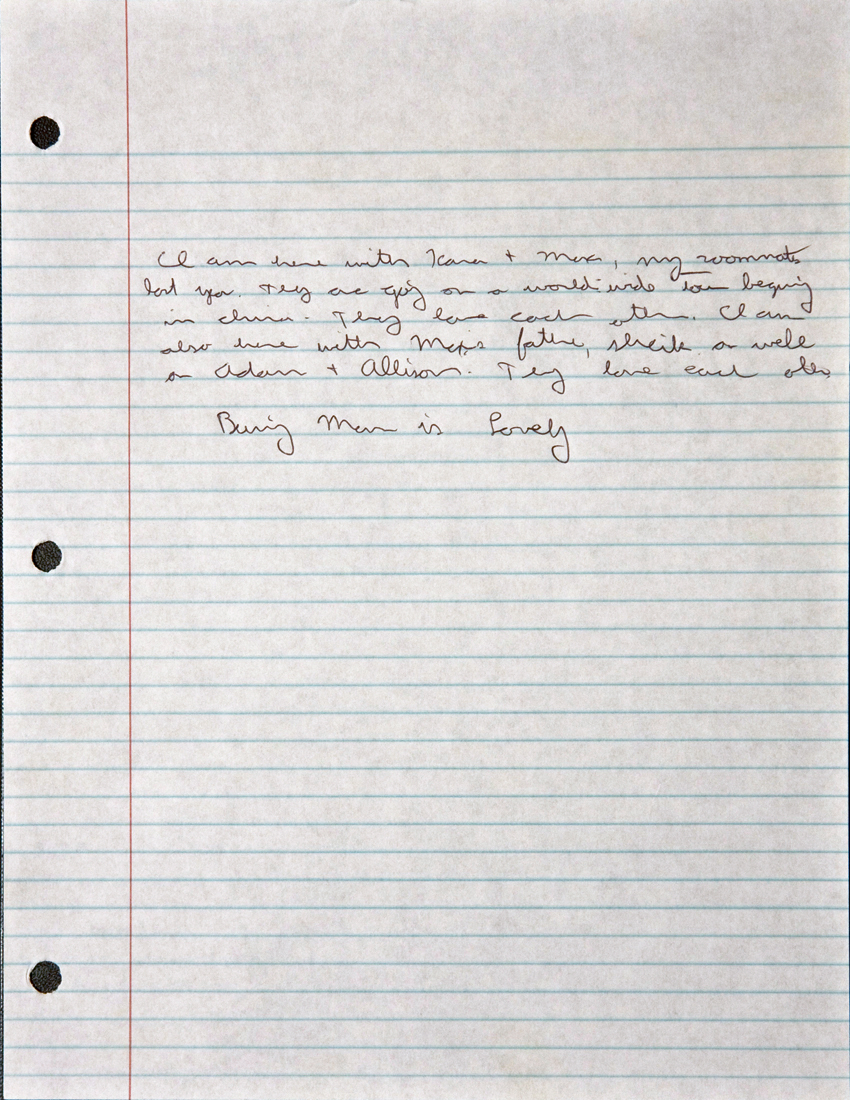 I am here with Kara + Max, my roommates
last year. They are going on a world wide tour beginning
in china. They love each other. I am
also here with Max's father, as well
as Adam + Allison. They love each other
Burning Man is Lovely